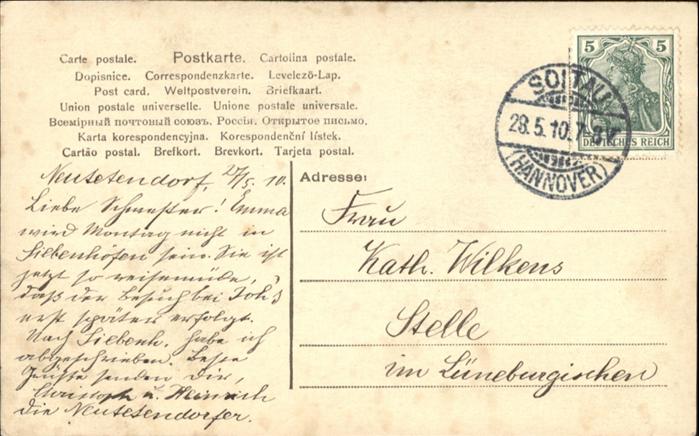 Carte postale. Postkarte. Cartolina postale.
Dopisnice. Correspondenzkarte. Levelező-Lap.
Post card. Weltpostverein. Briefkaart.
Union postale universelle. Unione postale universale.
Всемірный почтовый союзъ. Россія. Открытое письмо.
Karta korespondencyjna. Korespondenční lístek.
Cartão postal. Brefkort. Brevkort. Tarjeta postal.
5 5
DEUTSCHES REICH
SOLTAU
28.5.10. 7-8 V
(HANNOVER)
Neutetendorf, 27/5. 10.
Liebe Schwester! Emma
wird Montag nicht in
Siebenhöfen sein. Sie ist
jetzt so reisemüde,
daß der Besuch bei Joh's
erst später erfolgt.
Nach Siebenh. habe ich
abgeschrieben. Beste
Grüße senden Dir,
u. Heinrich
die Neutetendorfer.
Adresse:
Frau
Kath. Wilkens
Stelle
im Lüneburgischen